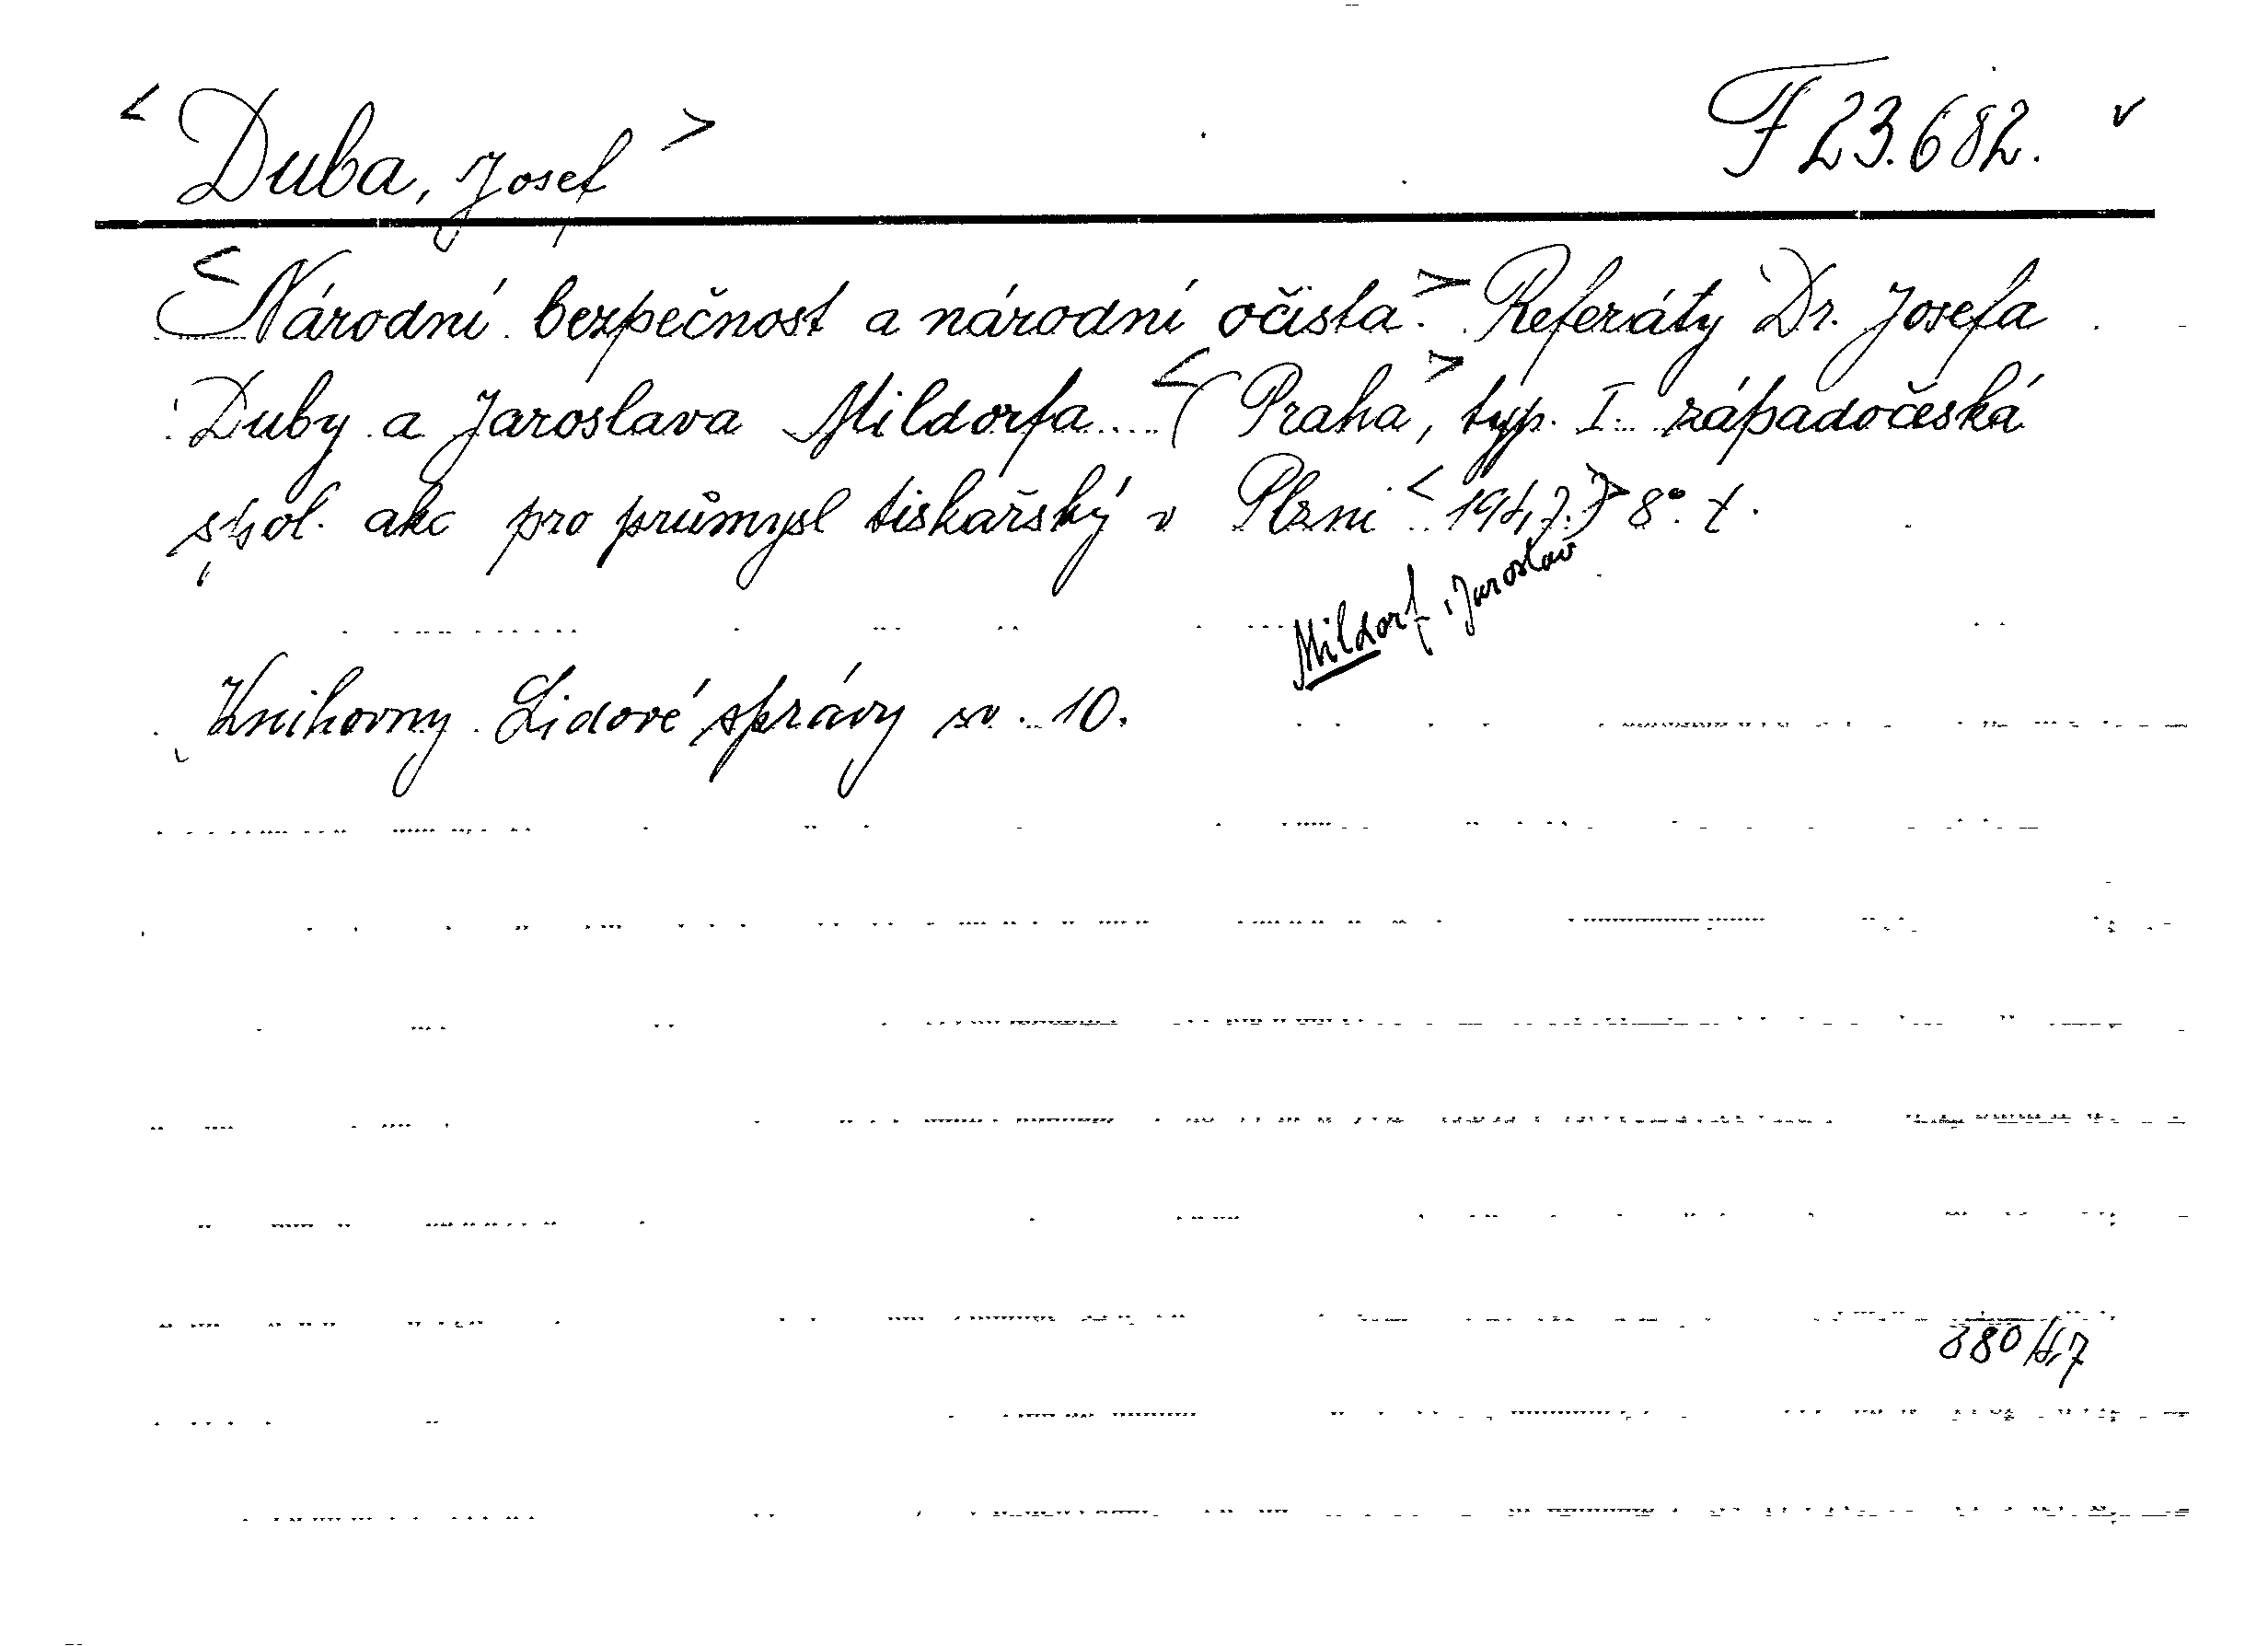 < Duba, Josef > F 23.682. v
< Národní bezpečnost a národní očista. > Referáty Dr. Josefa
Duby a Jaroslava Mildorfa < ( Praha >, typ. I. západočeská
spol. akc pro průmysl tiskařský v Plzni < 1947.) > 8°. t.
Mildorf, Jaroslav
Knihovny Lidové správy sv. 10.
880/47